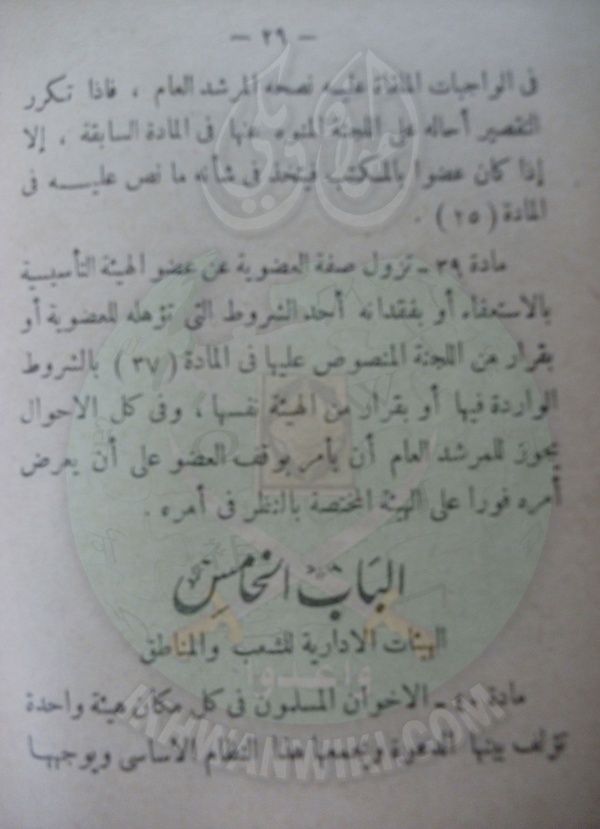 — ٢٩ —
فى الواجبات الملقاة عليه نصحه المرشد العام ، فاذا تكرر
التقصير أحاله على اللجنة المنوه عنها فى المادة السابقة ، إلا
إذا كان عضوا بالمكتب فيتخذ فى شأنه ما نص عليـــه فى
المادة ( ٢٥ ) .
مادة ٣٩ ـ تزول صفة العضوية عن عضو الهيئة التأسيسية
بالاستعفاء أو بفقدانه أحد الشروط التى تؤهله للعضوية أو
بقرار من اللجنة المنصوص عليها فى المادة ( ٣٧ ) بالشروط
الواردة فيها أو بقرار من الهيئة نفسها ، وفى كل الاحوال
يجوز للمرشد العام أن يأمر بوقف العضو على أن يعرض
أمره فورا على الهيئة المختصة بالنظر فى أمره .
الباب الخامس
الهيئات الادارية للشعب والمناطق
وأعدوا
مادة ٤٠ ـ الاخوان المسلمون فى كل مكان هيئة واحدة
تؤلف بينها الدعوة ويجمعها هذا النظام الأساسى ويوجهها
IKHWANWIKI.COM